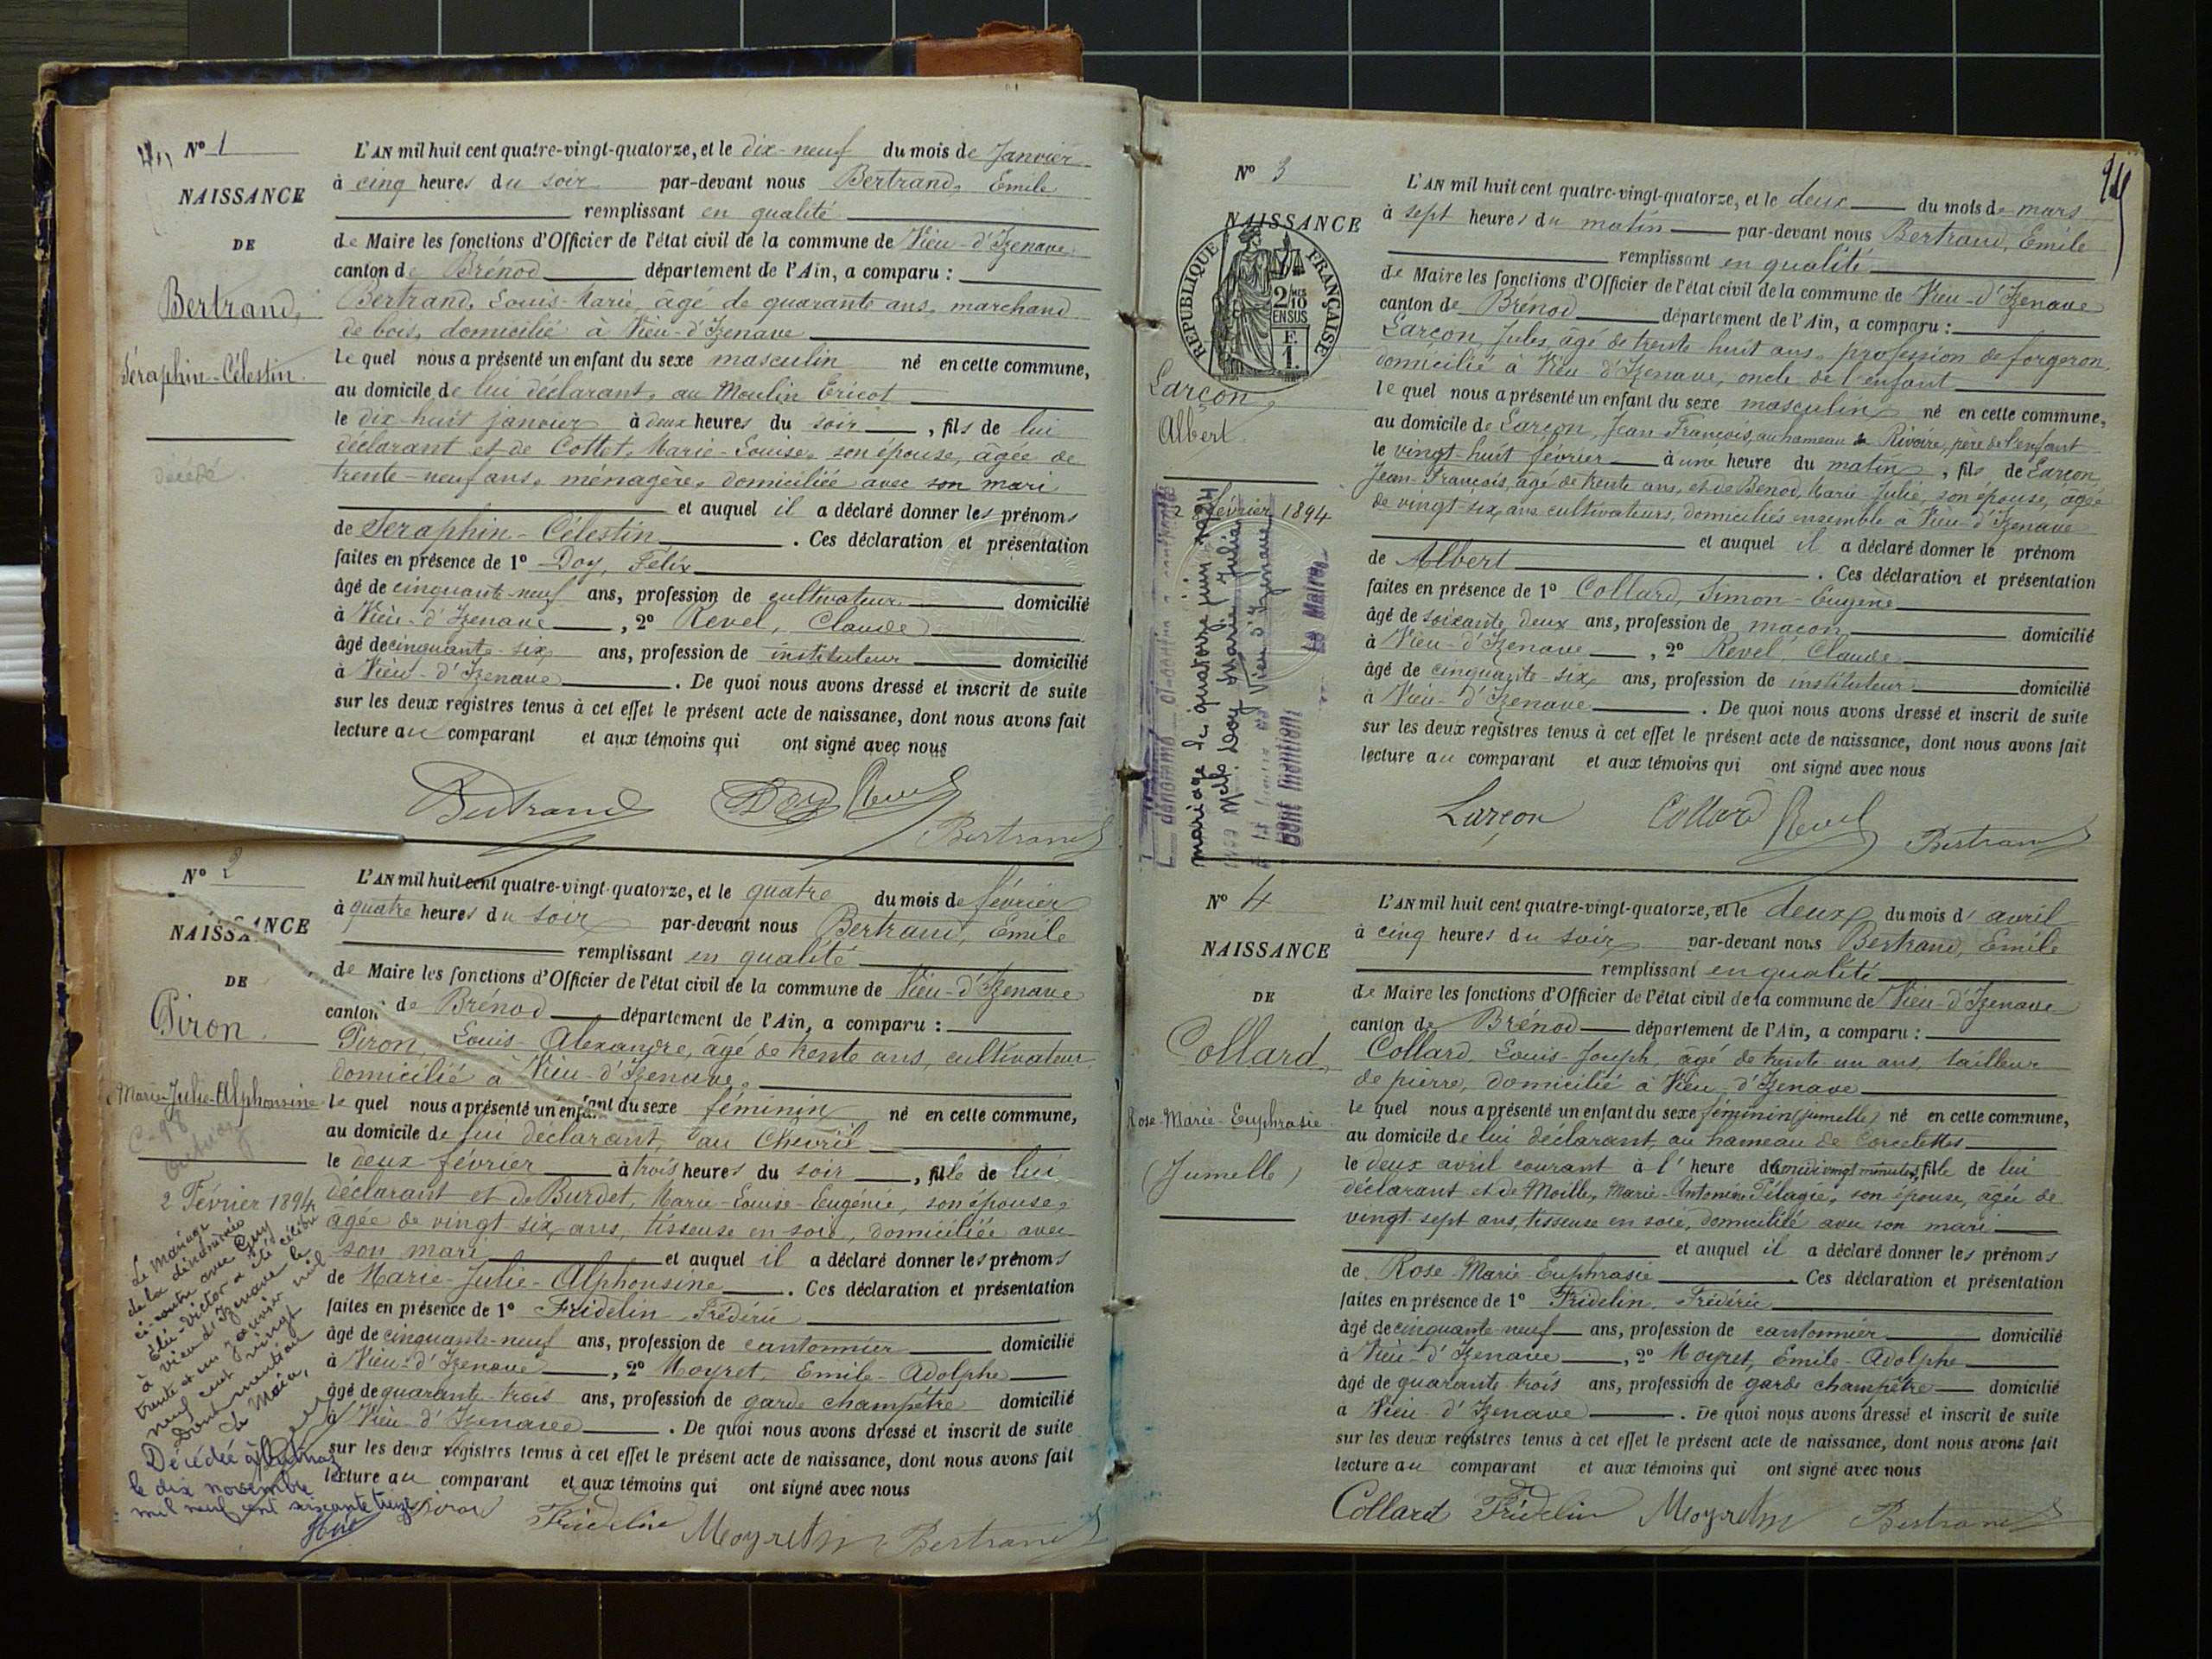 N° 1
NAISSANCE
DE
Bertrand,
Séraphin-Célestin.
décédé.
L'AN mil huit cent quatre-vingt-quatorze, et le dix-neuf du mois de Janvier
à cinq heures du soir par-devant nous Bertrand, Emile
remplissant en qualité
de Maire les fonctions d'Officier de l'état civil de la commune de Vieu-d'Izenave,
canton de Brénod département de l'Ain, a comparu :
Bertrand, Louis-Marie, âgé de quarante ans, marchand
de bois, domicilié à Vieu-d'Izenave
le quel nous a présenté un enfant du sexe masculin né en cette commune,
au domicile de lui déclarant, au Moulin Ericot
le dix-huit janvier à deux heures du soir, fils de lui
déclarant et de Cottet, Marie-Louise, son épouse, âgée de
trente-neuf ans, ménagère, domiciliée avec son mari
et auquel il a déclaré donner les prénoms
de Séraphin-Célestin. Ces déclaration et présentation
faites en présence de 1° Doy, Félix
âgé de cinquante-neuf ans, profession de cultivateur domicilié
à Vieu-d'Izenave, 2° Revel, Claude
âgé de cinquante-six ans, profession de instituteur domicilié
à Vieu-d'Izenave. De quoi nous avons dressé et inscrit de suite
sur les deux registres tenus à cet effet le présent acte de naissance, dont nous avons fait
lecture au comparant et aux témoins qui ont signé avec nous
Bertrand Doy Revel
Bertrand
N° 2
NAISSANCE
DE
Piron.
Marie-Julie-Alphonsine
2 Février 1894
Le Mariage
de la dénommée
ci-contre avec Guy
Elie-Victor a été célébré
à Vieu d'Izenave le
trente et un janvier mil
neuf cent vingt
Dont mention
Le Maire,
Décédée à
le dix novembre
mil neuf cent soixante treize
L'AN mil huit cent quatre-vingt-quatorze, et le quatre du mois de février
à quatre heures du soir par-devant nous Bertrand, Emile
remplissant en qualité
de Maire les fonctions d'Officier de l'état civil de la commune de Vieu-d'Izenave
canton de Brénod département de l'Ain, a comparu :
Piron, Louis-Alexandre, âgé de trente ans, cultivateur
domicilié à Vieu-d'Izenave,
le quel nous a présenté un enfant du sexe féminin né en cette commune,
au domicile de lui déclarant, au Chevril
le deux février à trois heures du soir, fille de lui
déclarant et de Burdet, Marie-Louise-Eugénie, son épouse,
âgée de vingt-six ans, tisseuse en soie, domiciliée avec
son mari et auquel il a déclaré donner les prénoms
de Marie-Julie-Alphonsine. Ces déclaration et présentation
faites en présence de 1° Fridelin Frédéric
âgé de cinquante-neuf ans, profession de cantonnier domicilié
à Vieu-d'Izenave, 2° Moyret, Emile-Adolphe
âgé de quarante-trois ans, profession de garde champêtre domicilié
à Vieu-d'Izenave. De quoi nous avons dressé et inscrit de suite
sur les deux registres tenus à cet effet le présent acte de naissance, dont nous avons fait
lecture au comparant et aux témoins qui ont signé avec nous
Piron Fridelin Moyret Bertrand
N° 3
NAISSANCE
REPUBLIQUE FRANÇAISE
2/10 MES
EN SUS
F.
1.
Larçon,
Albert.
28 février 1894
mariage le quatorze juin 1924
avec Melle Doy Marie Julia
Vieu d'Izenave
Dont mention
Le Maire,
L'AN mil huit cent quatre-vingt-quatorze, et le deux du mois de mars
à sept heures du matin par-devant nous Bertrand, Emile
remplissant en qualité
de Maire les fonctions d'Officier de l'état civil de la commune de Vieu-d'Izenave
canton de Brénod département de l'Ain, a comparu :
Larçon, Jules, âgé de trente-huit ans, profession de forgeron,
domicilié à Vieu-d'Izenave, oncle de l'enfant
le quel nous a présenté un enfant du sexe masculin né en cette commune,
au domicile de Larçon, Jean François, au hameau de Rivoire, père de l'enfant
le vingt-huit février à une heure du matin, fils de Larçon,
Jean-François, âgé de trente ans, et de Benod, Marie-Julie, son épouse, âgée
de vingt-six ans cultivateurs, domiciliés ensemble à Vieu-d'Izenave
et auquel il a déclaré donner le prénom
de Albert. Ces déclaration et présentation
faites en présence de 1° Collard, Simon-Eugène
âgé de soixante deux ans, profession de maçon domicilié
à Vieu-d'Izenave, 2° Revel, Claude
âgé de cinquante-six ans, profession de instituteur domicilié
à Vieu-d'Izenave. De quoi nous avons dressé et inscrit de suite
sur les deux registres tenus à cet effet le présent acte de naissance, dont nous avons fait
lecture au comparant et aux témoins qui ont signé avec nous
Larçon Collard Revel Bertrand
N° 4
NAISSANCE
DE
Collard,
Rose-Marie-Euphrasie.
(Jumelle)
L'AN mil huit cent quatre-vingt-quatorze, et le deux du mois d'avril
à cinq heures du soir par-devant nous Bertrand, Emile
remplissant en qualité
de Maire les fonctions d'Officier de l'état civil de la commune de Vieu-d'Izenave
canton de Brénod département de l'Ain, a comparu :
Collard, Louis-Joseph, âgé de trente-un ans, tailleur
de pierre, domicilié à Vieu-d'Izenave
le quel nous a présenté un enfant du sexe féminin (jumelle) né en cette commune,
au domicile de lui déclarant, au hameau de Corcelettes
le deux avril courant à l'heure de midi vingt minutes, fille de lui
déclarant et de Moille, Marie-Antonine Pélagie, son épouse, âgée de
vingt sept ans, tisseuse en soie, domicilié avec son mari
et auquel il a déclaré donner les prénoms
de Rose-Marie-Euphrasie. Ces déclaration et présentation
faites en présence de 1° Fridelin, Frédéric
âgé de cinquante-neuf ans, profession de cantonnier domicilié
à Vieu-d'Izenave, 2° Moyret, Emile-Adolphe
âgé de quarante trois ans, profession de garde champêtre domicilié
à Vieu-d'Izenave. De quoi nous avons dressé et inscrit de suite
sur les deux registres tenus à cet effet le présent acte de naissance, dont nous avons fait
lecture au comparant et aux témoins qui ont signé avec nous
Collard Fridelin Moyret Bertrand